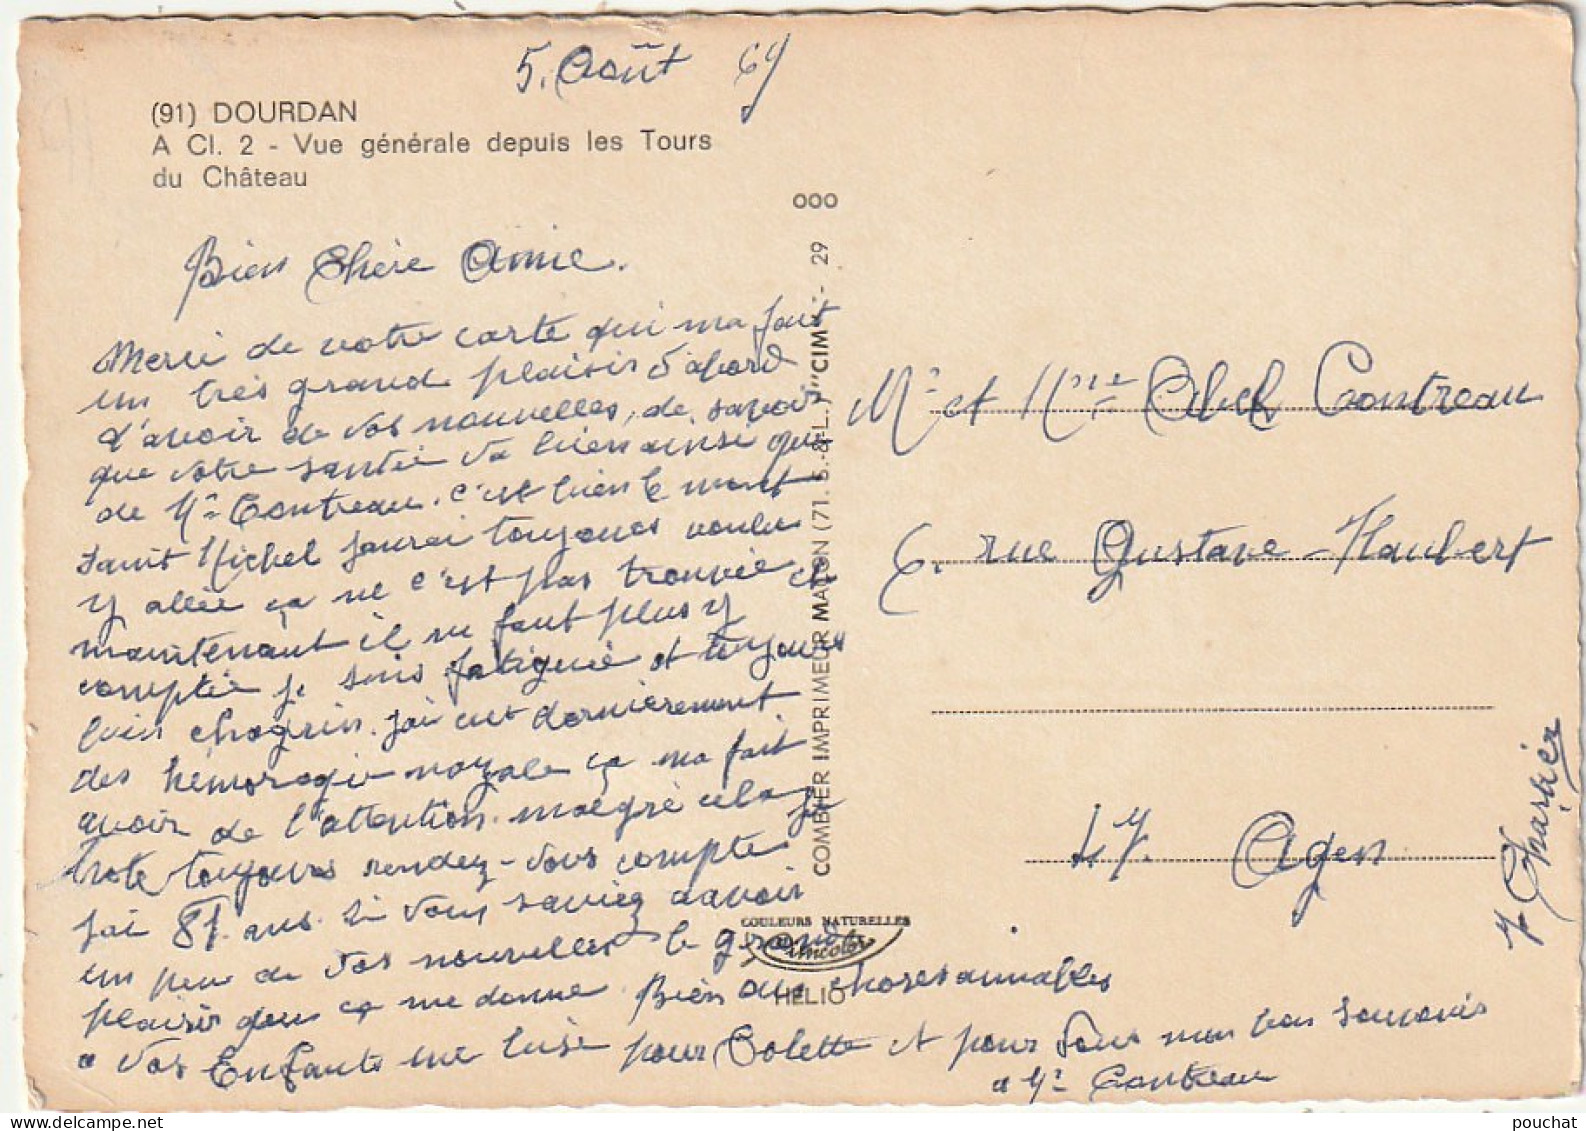 5. Août 69
(91) DOURDAN
A Cl. 2 - Vue générale depuis les Tours
du Château
Bien Chère Amie.
Merci de votre carte qui ma fait
un très grand plaisir d'abord
d'avoir de vos nouvelles, de savoir
que votre santée va bien ainsi que
de Mr Contreau. c'est bien le mont
Saint Michel jaurai toujours voulu
y allée ça ne c'est pas trouvée et
maintenant il ne faut plus y
comptée je suis fatiguée et toujours
bien chagrin. jai eut dernièrement
des hémoragie nazale ça ma fait
avoir de l'attention. malgré cela je
trote toujours rendez-vous compte
jai 81. ans. Si vous saviez avoir
un peu de vos nouvelles le grand
plaisir que ça me donne. Bien des choses aimables
a vos Enfants une bise pour Colette et pour Vous mon bon Souvenir
a Mr Contreau
J. Charrier
OOO
COMBIER IMPRIMEUR MACON (71. S.-&-L.) "CIM" - 29
COULEURS NATURELLES
Cimcolor
HELIO
Mr et Mme Abel Contreau
6. rue Gustave-Flaubert
47. Agen
pouchat